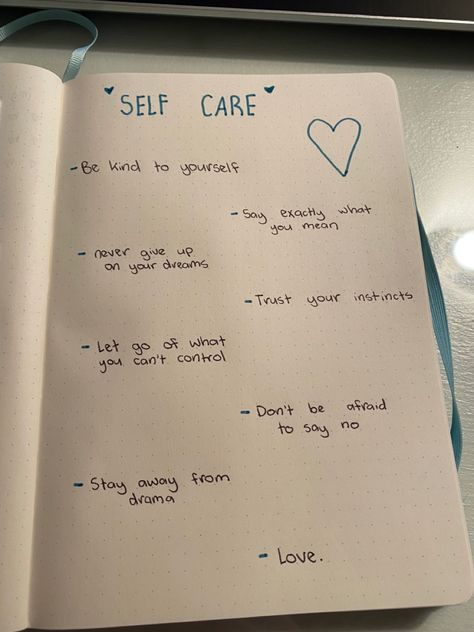 SELF CARE
- Be kind to yourself
- Say exactly what
you mean
- never give up
on your dreams
- Trust your instincts
- Let go of what
you can't control
- Don't be afraid
to say no
- Stay away from
drama
- Love.